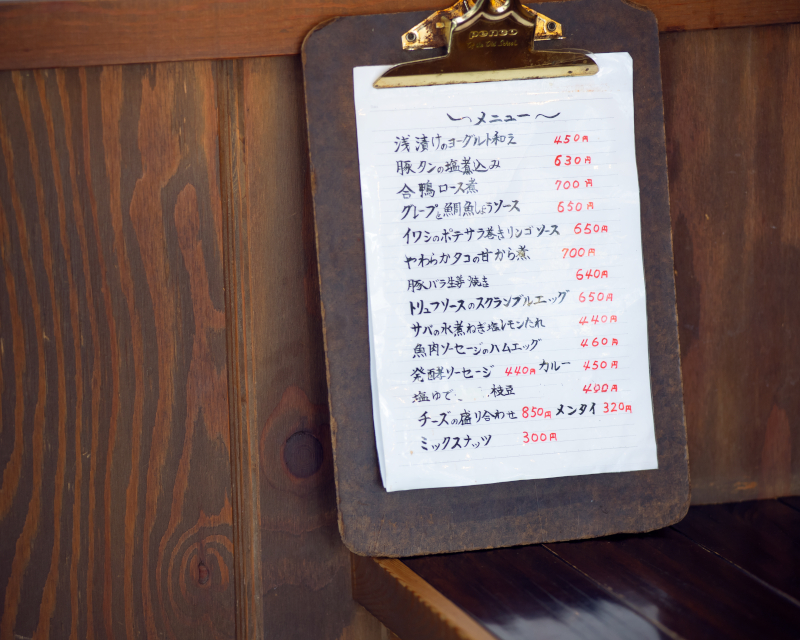 penco
メニュー
浅漬けのヨーグルト和え 450円
豚タンの塩煮込み 630円
合鴨ロース煮 700円
グレープと鯛魚しょうソース 650円
イワシのポテサラ巻きリンゴソース 650円
やわらかタコの甘から煮 700円
豚バラ生姜焼き 640円
トリュフソースのスクランブルエッグ 650円
サバの水煮ねぎ塩レモンたれ 440円
魚肉ソーセージのハムエッグ 460円
発酵ソーセージ 440円 カルー 450円
塩ゆで 枝豆 400円
チーズの盛り合わせ 850円 メンタイ 320円
ミックスナッツ 300円